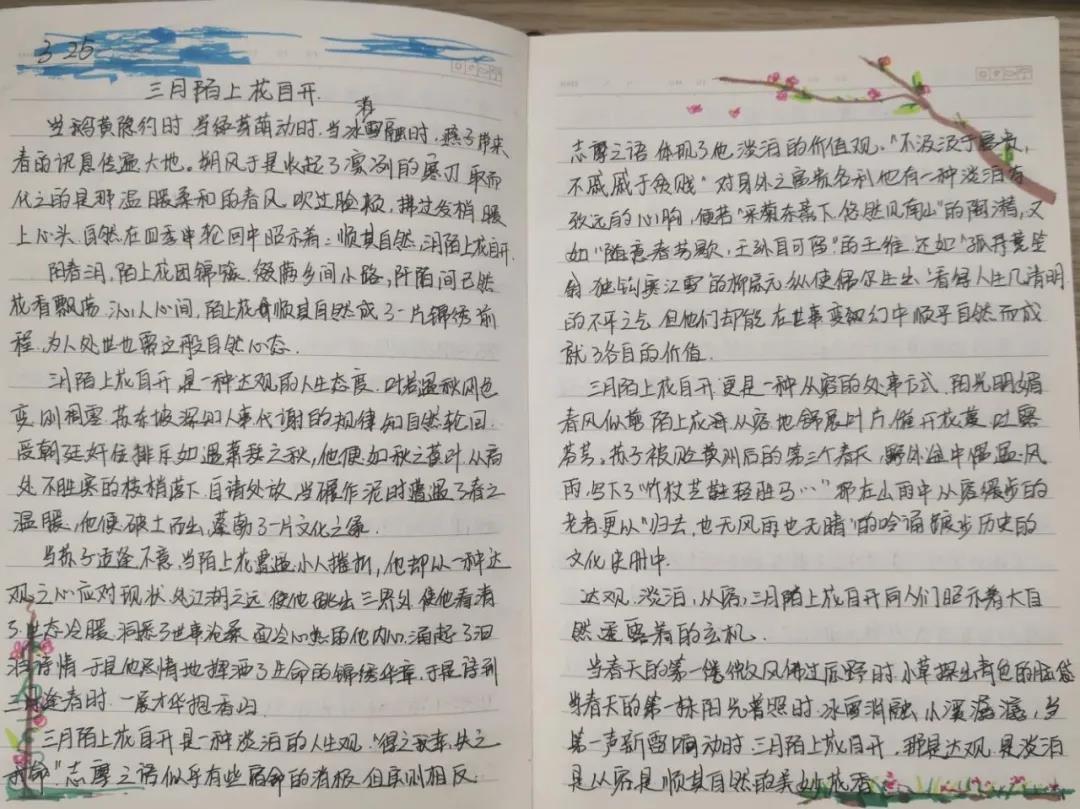 3 25
三月陌上花自开.
消
当鹅黄隐约时,当绿芽萌动时,当冰雪融时,燕子带来
春的讯息传遍大地。朔风于是收起了凛冽的磨刃,取而
代之的是那温暖柔和的春风,吹过脸颊,拂过发梢,暖
上心头.自然在四季中轮回中昭示着:顺其自然,三月陌上花自开.
阳春三月,陌上花团锦簇,缀满乡间小路,阡陌间已然
花香飘荡,沁人心间,陌上花开顺其自然成了一片锦绣前
程.为人处世也需这般自然心态.
三月陌上花自开是一种达观的人生态度.叶若遇秋风也
变则凋零.苏东坡深知人事代谢的规律如自然轮回.
受朝廷奸佞排斥如遇萧瑟之秋,他便如秋之落叶从高
处不胜寒的枝梢落下.自请外放,当碾作泥时遭遇了春之
温暖.他便破土而出,蓬勃了一片文化之象.
当苏子遭逢不意,当陌上花遭遇小人摧折,他却从一种达
观之心应对现状.处江湖之远使他跳出三界外,使他看清
了世态冷暖.洞悉了世事沧桑.面冷心热的他内心涌起了汩
汩诗情.于是他尽情地挥洒了生命的锦绣华章.于是待到
三月逢春时.一展才华抱春归.
三月陌上花自开是一种淡泊的人生观."得之我幸,失之
我命."志摩之语似乎有些宿命的消极.但实则相反.
志摩之语体现了他淡泊的价值观。"不汲汲于富贵,
不戚戚于贫贱"对身外之富贵名利他有一种淡泊有
致远的心胸,便若"采菊东篱下,悠然见南山"的陶潜,又
如"随意春芳歇,王孙自可留"的王维.还如"孤舟蓑笠
翁,独钓寒江雪"的柳宗元.纵使偶尔生出"看得人生几清明"
的不平之气.但他们却能在世事变幻中顺乎自然而成
就了各自的价值.
三月陌上花自开更是一种从容的处事方式.阳光明媚
春风似剪,陌上花开从容地舒展叶片,催开花蔓,吐露
芬芳。苏子被贬黄州后的第三个春天,野外途中偶遇风
雨,写下了"竹杖芒鞋轻胜马…"那在山雨中从容缓步的
老者更从"归去,也无风雨也无晴"的吟诵踱步历史的
文化史册中.
达观.淡泊,从容,三月陌上花自开向人们昭示着大自
然透露着的玄机.
当春天的第一缕微风拂过原野时.小草探出青色的脑袋
当春天的第一抹阳光普照时.冰雪消融,小溪潺潺,当
第一声新雷响动时.三月陌上花自开.那是达观.是淡泊
是从容是顺其自然的美妙花香.